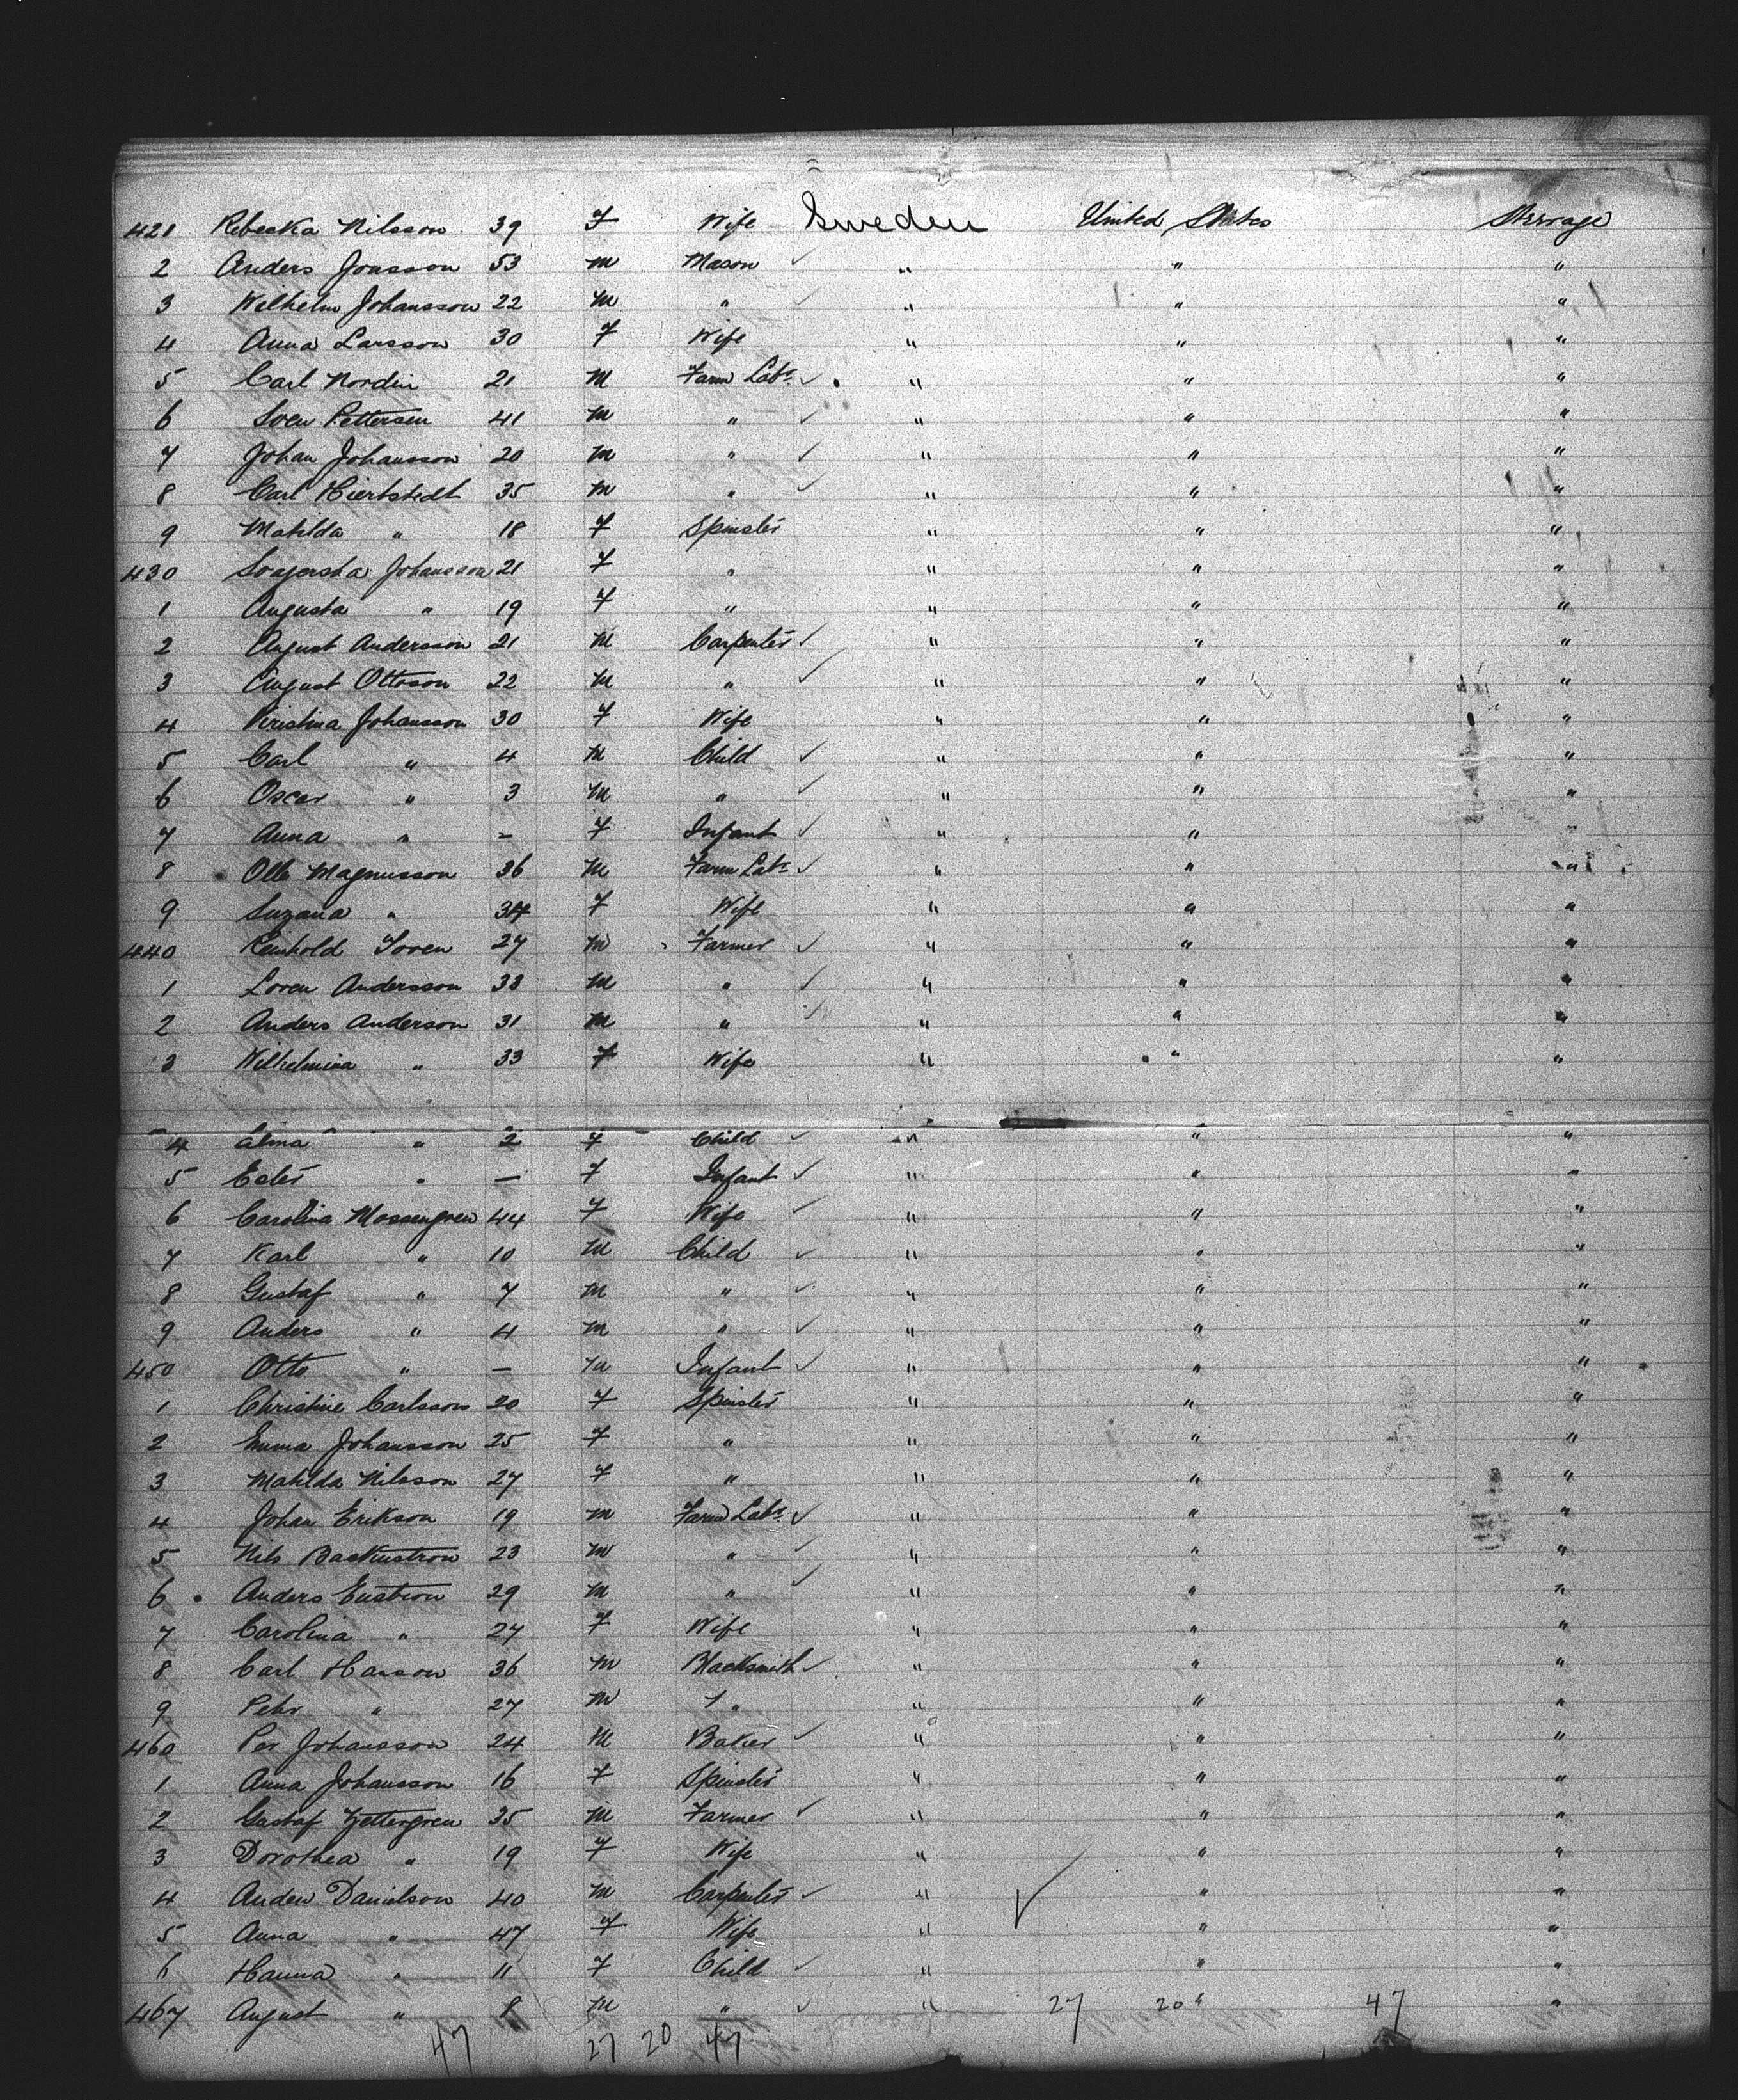 421 Rebecka Nilsson 39 F Wife Sweden United States Steerage
2 Anders Jonsson 53 M Mason " " "
3 Wilhelm Johansson 22 M " " " "
4 Anna Larsson 30 F Wife " " "
5 Carl Nordin 21 M Farm Labr " " "
6 Sven Pettersen 41 M " " " "
7 Johan Johansson 20 M " " " "
8 Carl Kiertstedt 35 M " " " "
9 Matilda " 18 F Spinster " " "
430 Johansson 21 F " " " "
1 Augusta " 19 F " " " "
2 August Andersson 21 M Carpenter " " "
3 August Ottoson 22 M " " " "
4 Kristina Johansson 30 F Wife " " "
5 Carl " 4 M Child " " "
6 Oscar " 3 M " " " "
7 Anna " - F Infant " " "
8 Olle Magnusson 36 M Farm Labr " " "
9 Suzana " 34 F Wife " " "
440 Reinhold Toren 27 M Farmer " " "
1 Loren Andersson 33 M " " " "
2 Anders Anderson 31 M " " " "
3 Wilhelmina " 33 F Wife " " "
4 Alma " 2 F Child " " "
5 Ester " — F Infant " " "
6 Carolina Mossengren 44 F Wife " " "
7 Karl " 10 M Child " " "
8 Gustaf " 7 M " " " "
9 Anders " 4 M " " " "
450 Otto " — M Infant " " "
1 Christine Carlsson 20 F Spinster " " "
2 Emma Johansson 25 F " " " "
3 Matilda Nilsson 27 F " " " "
4 Johan Erikson 19 M Farm Labr " " "
5 Nils Backustrom 23 M " " " "
6 Anders Enstrom 29 M " " " "
7 Carolina " 27 F Wife " " "
8 Carl Hanson 36 M Blacksmith " " "
9 Pehr " 27 M " " " "
460 Per Johansson 24 M Baker " " "
1 Anna Johansson 16 F Spinster " " "
2 Gustaf Zettergren 35 M Farmer " " "
3 Dorothea " 19 F Wife " " "
4 Anders Danielson 40 M Carpenter " " "
5 Anna " 47 F Wife " " "
6 Hanna " 11 F Child " " "
467 August " 8 M " " 27 20 " 47 "
47 27 20 47